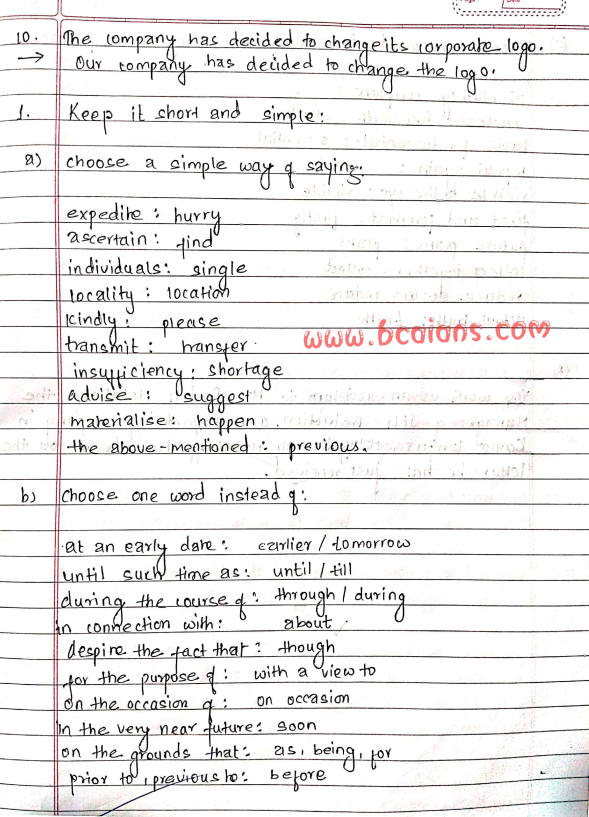 10. The company has decided to change its corporate logo.
→ Our company has decided to change the logo.
1. Keep it short and simple:
a) choose a simple way of saying:
expedite : hurry
ascertain : find
individuals: single
locality : location
kindly : please
transmit : transfer.
www.bcoions.com
insufficiency : shortage
advise : suggest
materialise : happen
the above-mentioned : previous.
b) Choose one word instead of:
at an early date : earlier / tomorrow
until such time as : until / till
during the course of : through / during
in connection with: about
despine the fact that : though
for the purpose of : with a view to
on the occasion of : on occasion
In the very near future: soon
on the grounds that: as, being, for
prior to, previous to: before